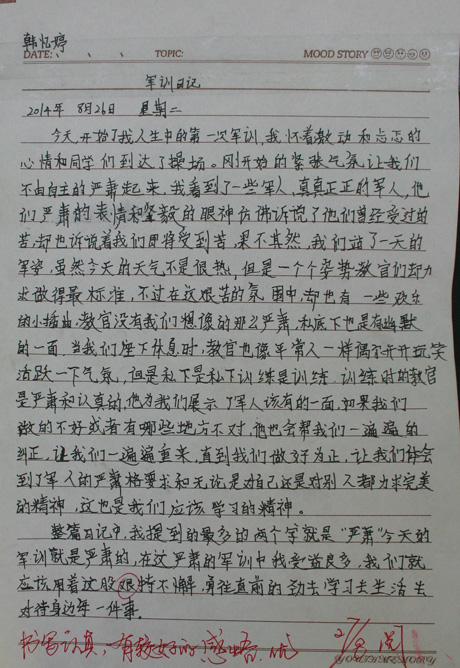 韩忆婷
DATE: 、 、 、 TOPIC: MOOD STORY
军训日记
2014年 8月26日 星期二
今天,开始了我人生中的第一次军训,我怀着激动和忐忑的
心情和同学们到达了操场。刚开始的紧张气氛让我们
不由自主的严肃起来,我看到了一些军人,真真正正的军人,他
们严肃的表情和坚毅的眼神仿佛诉说了他们曾经受过的
苦,却也诉说着我们即将受到苦,果不其然,我们站了一天的
军姿,虽然今天的天气不是很热,但是一个个姿势教官们却力
求做得最标准,不过在这艰苦的氛围中,却也有一些欢乐
的小插曲,教官没有我们想像的那么严肃,私底下也是有幽默
的一面,当我们座下休息时,教官也像平常人一样偶尔开开玩笑
活跃一下气氛,但是私下是私下训练是训练,训练时的教官
是严肃和认真的,他为我们展示了军人该有的一面,如果我们
做的不好或者有哪些地方不对,他也会帮我们一遍遍的
纠正,让我们一遍遍重来,直到我们做好为止,让我们体会
到了军人的严肃格要求和无论是对自己还是对别人都力求完美
的精神,这也是我们应该学习的精神。
整篇日记中,我提到的最多的两个字就是“严肃”今天的
军训就是严肃的,在这严肃的军训中我受益良多,我们就
应该用着这股狠持不懈,勇往直前的劲去学习去生活去
对待身边每一件事。
书写认真,有较好的感悟。优
27/8 阅